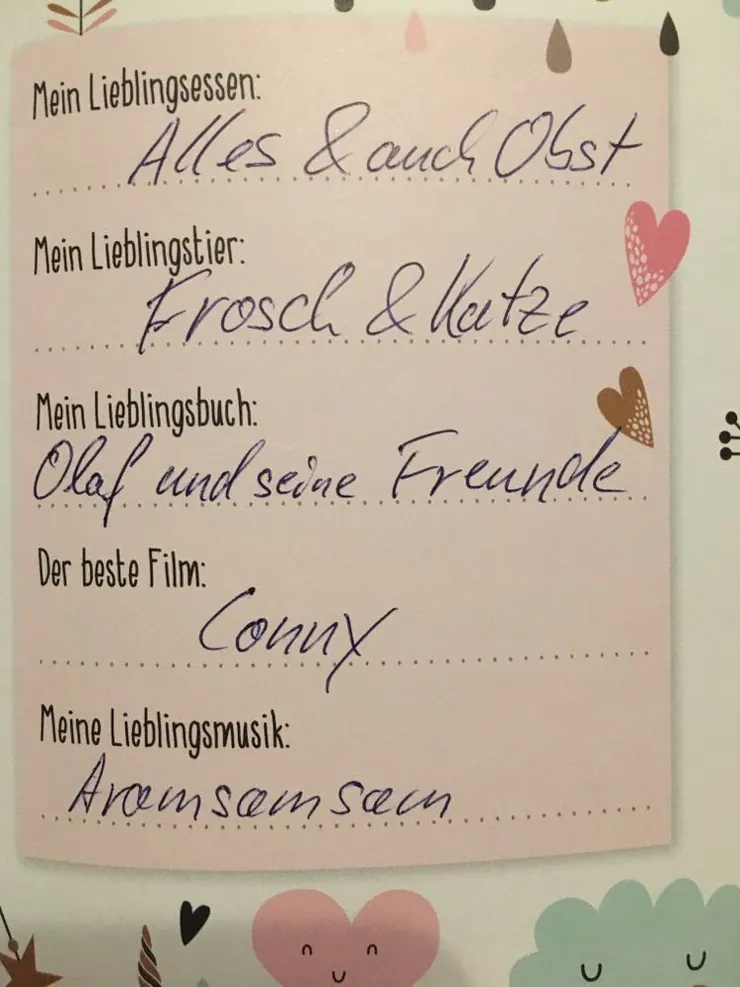 Mein Lieblingsessen:
Alles & auch Obst
Mein Lieblingstier:
Frosch & Katze
Mein Lieblingsbuch:
Olaf und seine Freunde
Der beste Film:
Conny
Meine Lieblingsmusik:
Aramsamsam